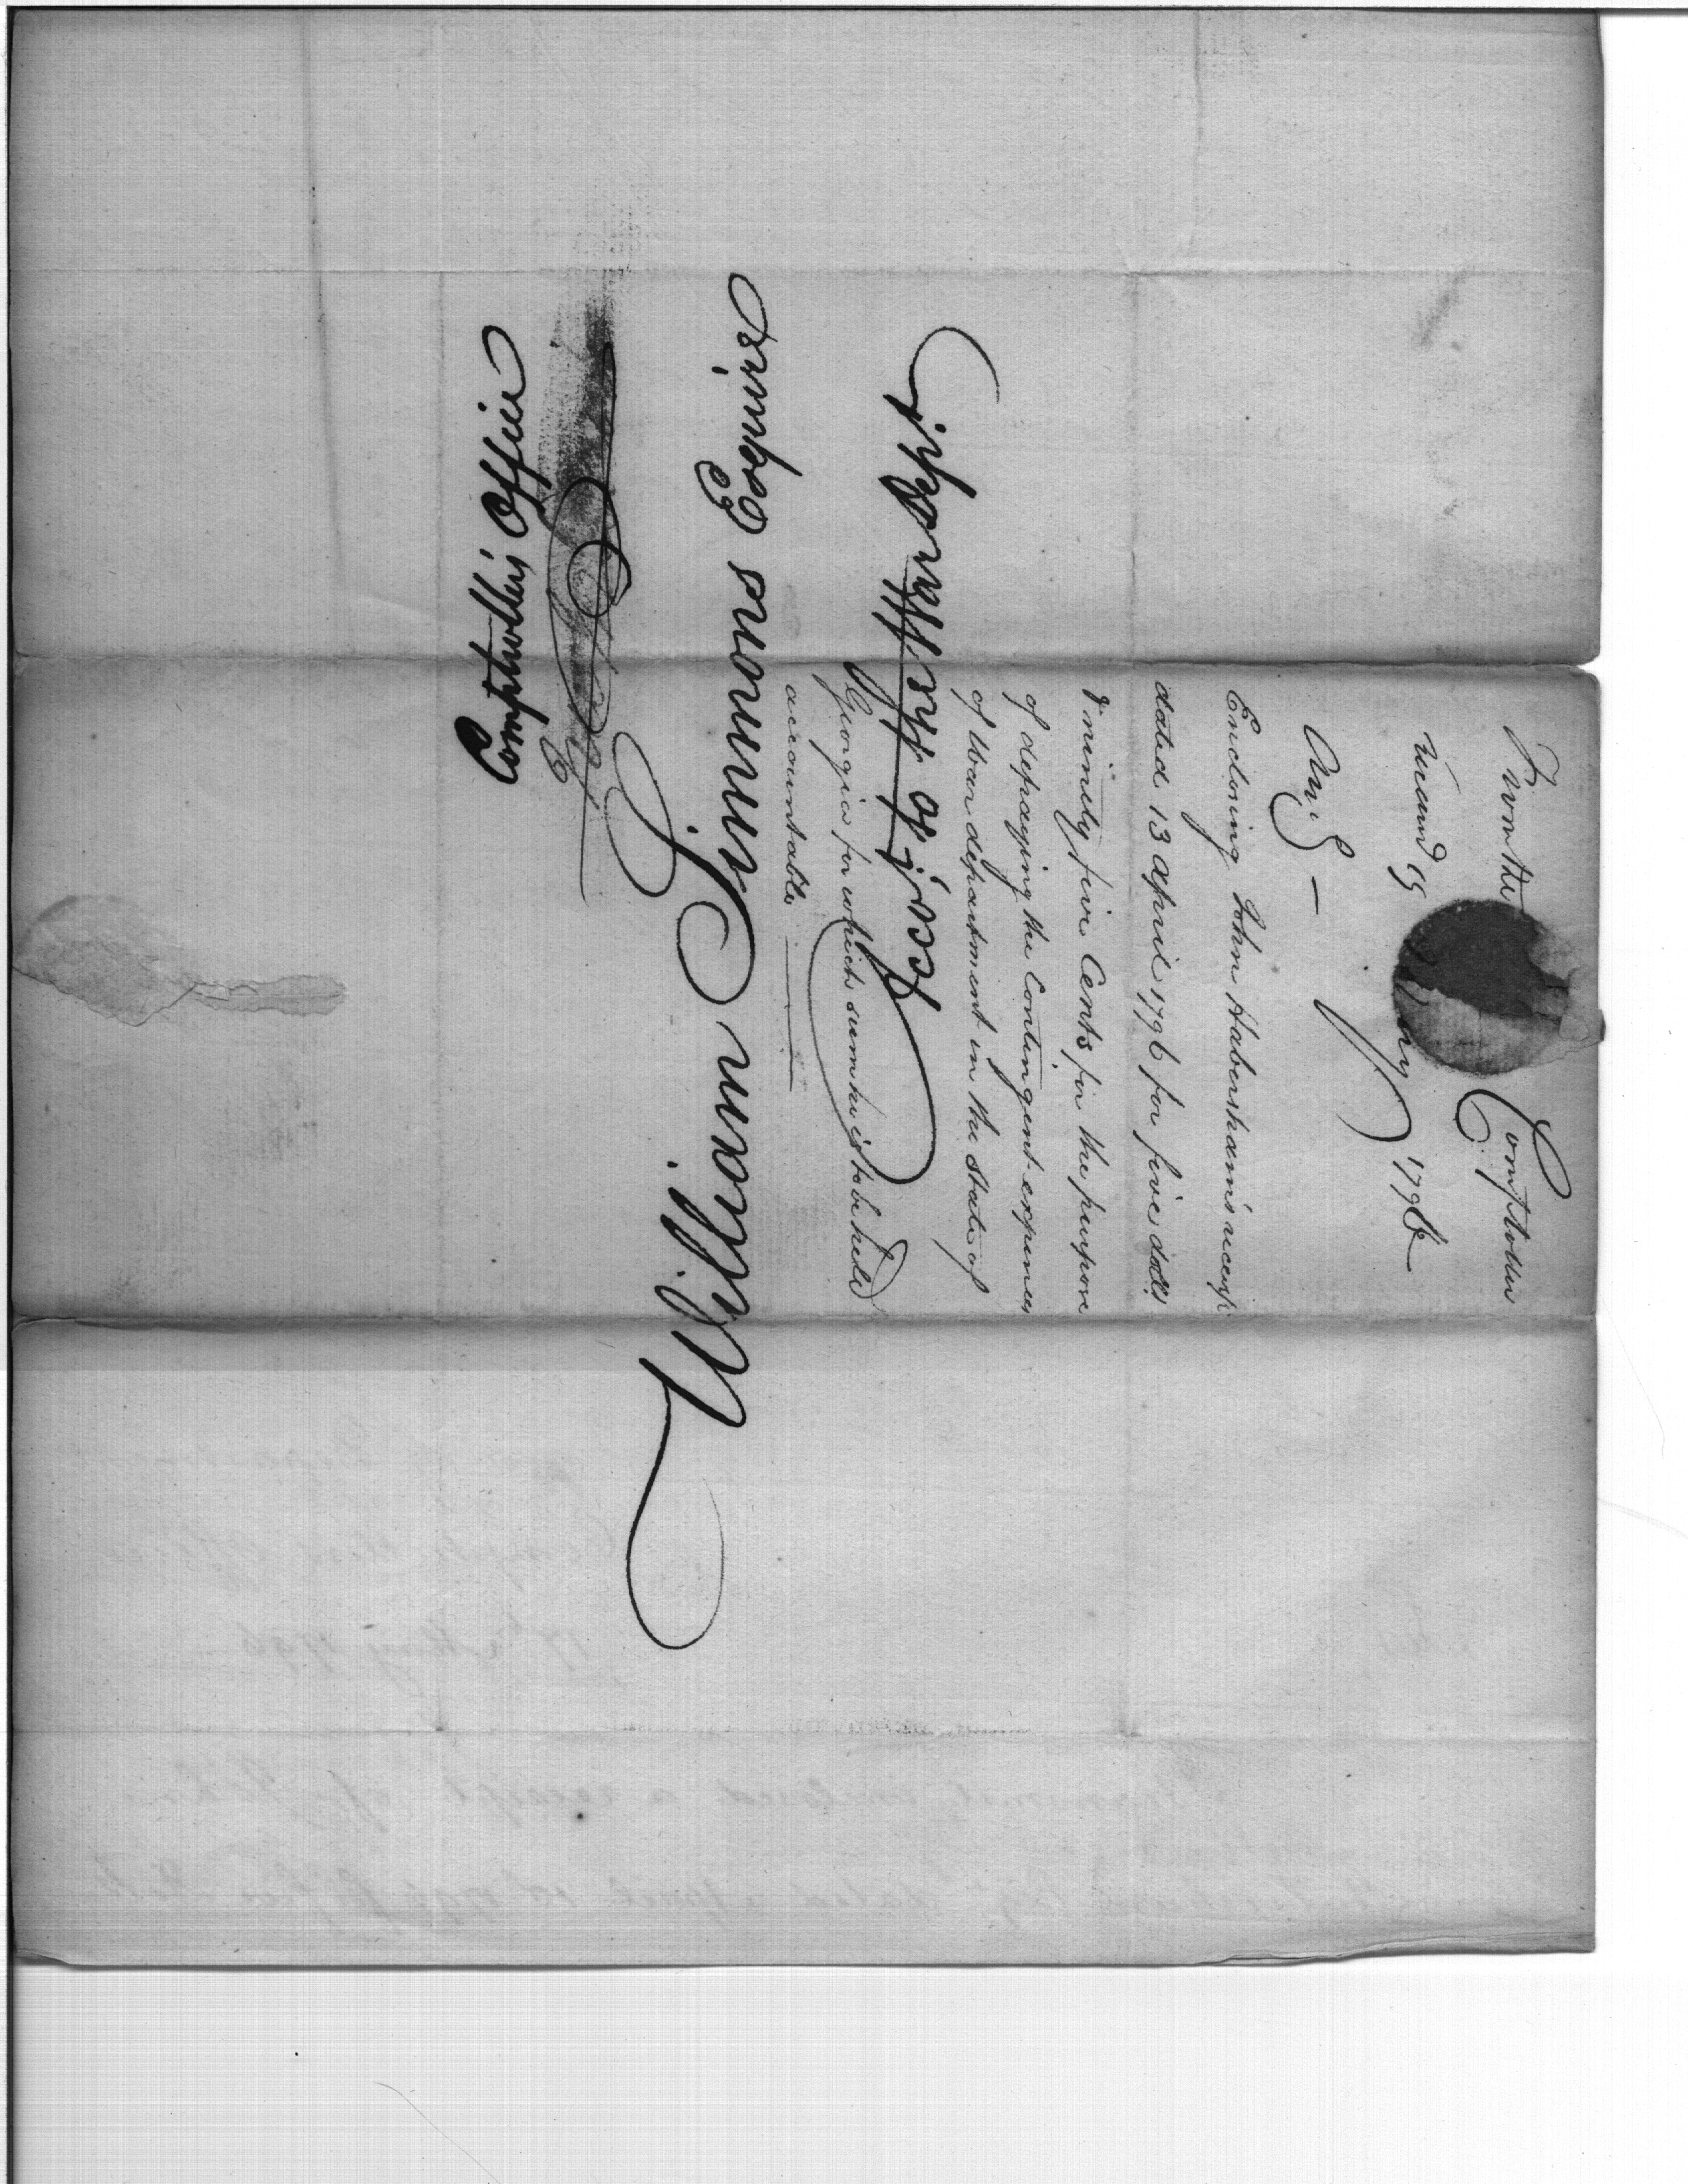 From the Comptroller
received 19 May 1796
Ans.
Enclosing John Habersham's receipt
dated 13 April 1796 for five dolls
& ninety five Cents, for the purpose
of defraying the Contingent expenses
of War department in the State of
Georgia for which sum he is to be held
accountable
William Simmons Esquire
Accot. of the War Dept.
Comptroller's Office